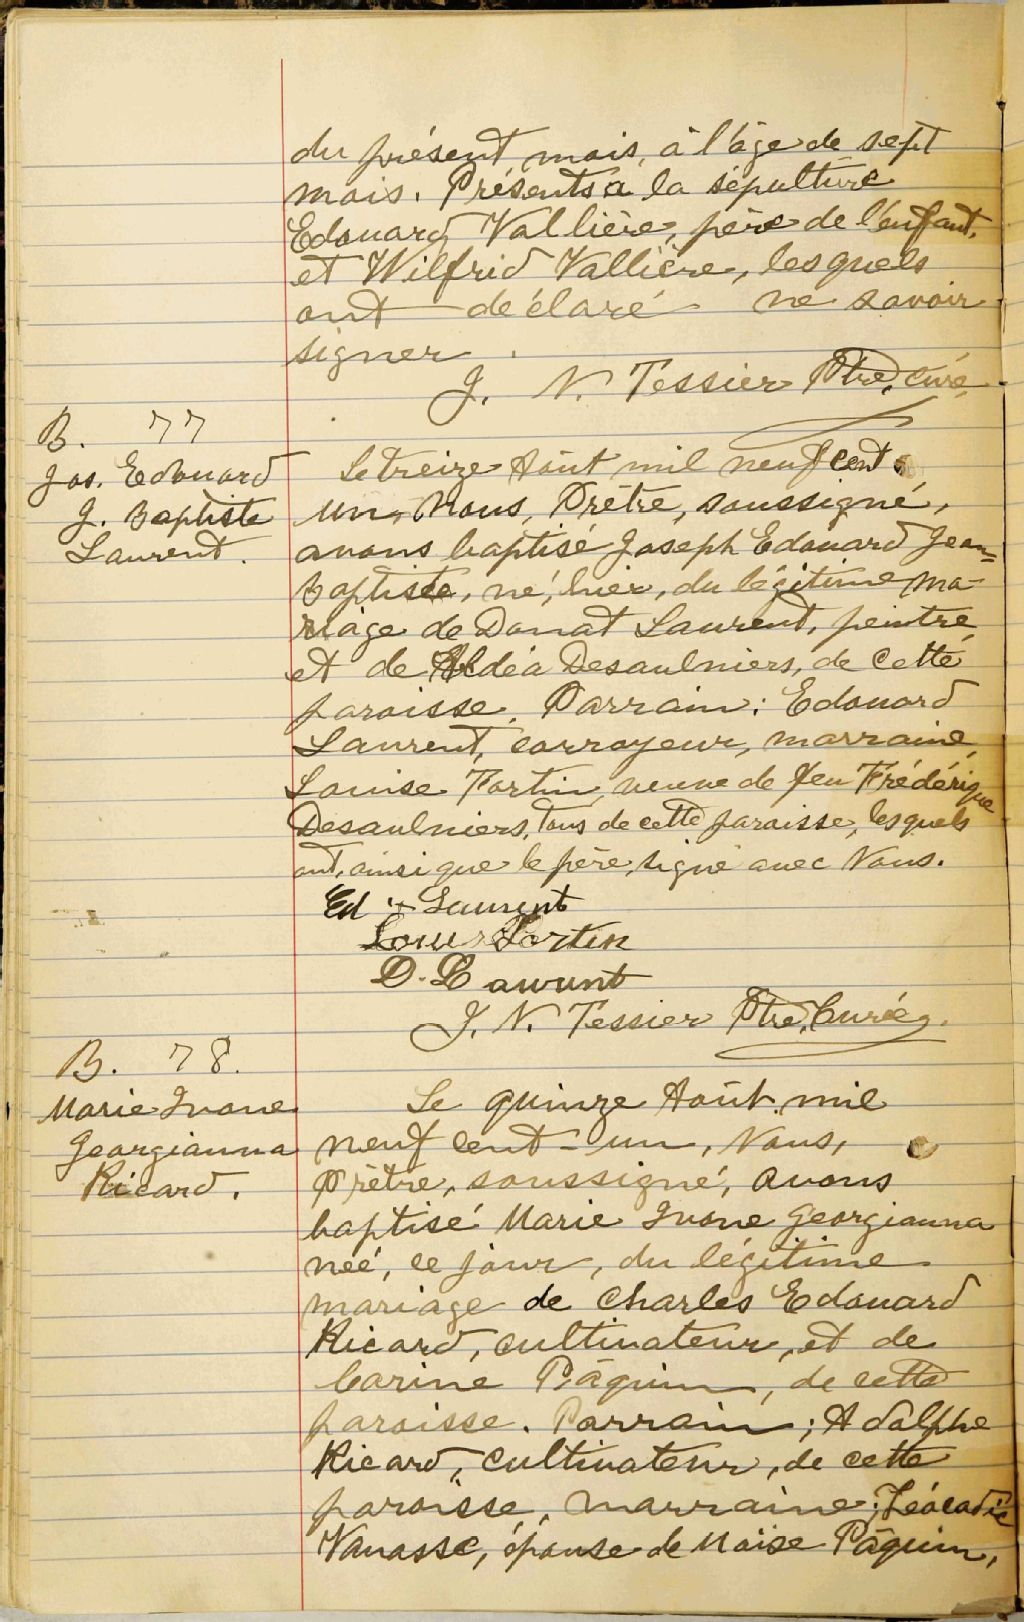 du présent mois, à l'âge de sept
mois. Présents à la sépulture
Edouard Vallière, père de l'enfant,
et Wilfrid Vallière, lesquels
ont déclaré ne savoir
signer.
J. N. Tessier Ptre, Curé
B. 77
Jos. Edouard
J. Baptiste
Laurent.
Le treize Août mil neuf cent
un, Nous, Prêtre, soussigné,
avons baptisé Joseph Edouard Jean-
Baptiste, né, hier, du légitime ma-
riage de Donat Laurent, peintre,
et de Aldéa Desaulniers, de cette
paroisse. Parrain: Edouard
Laurent, corroyeur, marraine,
Louise Fortin, veuve de feu Frédérique
Desaulniers, tous de cette paroisse, lesquels
ont, ainsi que le père, signé avec Nous.
Ed Laurent
Louise Fortin
D. Laurent
J. N. Tessier Ptre, Curé
B. 78.
Marie Ivone
Georgianna
Ricard.
Le quinze Août mil
neuf cent-un, Nous,
Prêtre, soussigné, avons
baptisé Marie Ivone Georgianna
née, ce jour, du légitime
mariage de Charles Edouard
Ricard, cultivateur, et de
Carine Pâquin, de cette
paroisse. Parrain; Adolphe
Ricard, cultivateur, de cette
paroisse, marraine; Léocadie
Vanasse, épouse de Moïse Pâquin,